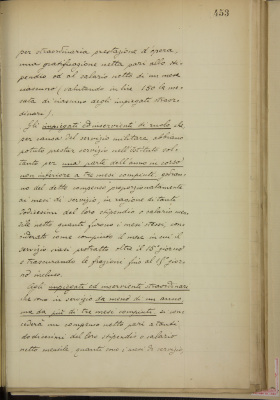 453
per straordinaria prestazione d'opera,
una gratificazione netta pari allo sti-
pendio od al salario netto di un mese
massimo (valutando in lire 150 la me-
sata di ciascuno degli impiegati straor-
dinari).
Gli impiegati ed inservienti di ruolo che
per causa del servizio militare abbiano
potuto prestar servizio nell'Istituto sol-
tanto per una parte dell'anno in corso
non inferiore a tre mesi compiuti, potran-
no del detto compenso proporzionalmente
ai mesi di servizio, in ragione di tanti
dodicesimi del loro stipendio o salario men-
sile netto quanti furono i mesi stessi, con-
siderato come compiuto il mese in cui il
servizio siasi protratto oltre il 15° giorno
e trascurando le frazioni fino al 15° gior-
no incluso.
Agli impiegati ed inservienti straordinari
che sono in servizio da meno di un anno,
ma da più di tre mesi compiuti, si con-
cederà un compenso netto pari a tanti
dodicesimi del loro stipendio o salario
netto mensile quanti sono i mesi di servizio